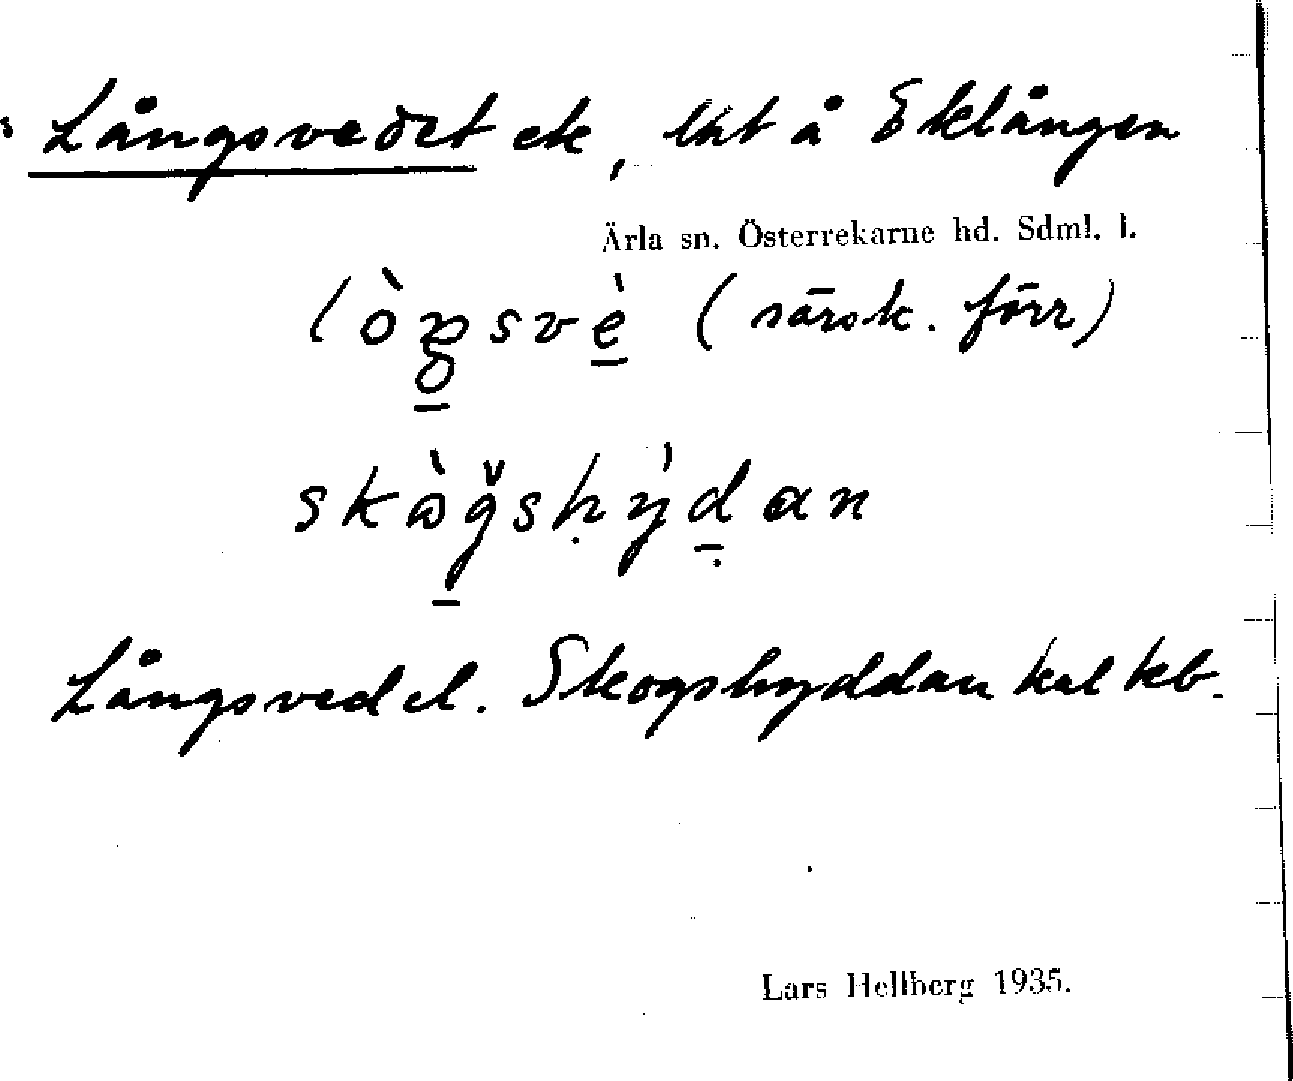 Långsvedet ek, lht å Eklången
Ärla sn. Österrekarne hd. Sdml. l.
(särsk. förr)
Långsvedel. Skogshyddan kal kb.
Lars Hellberg 1935.